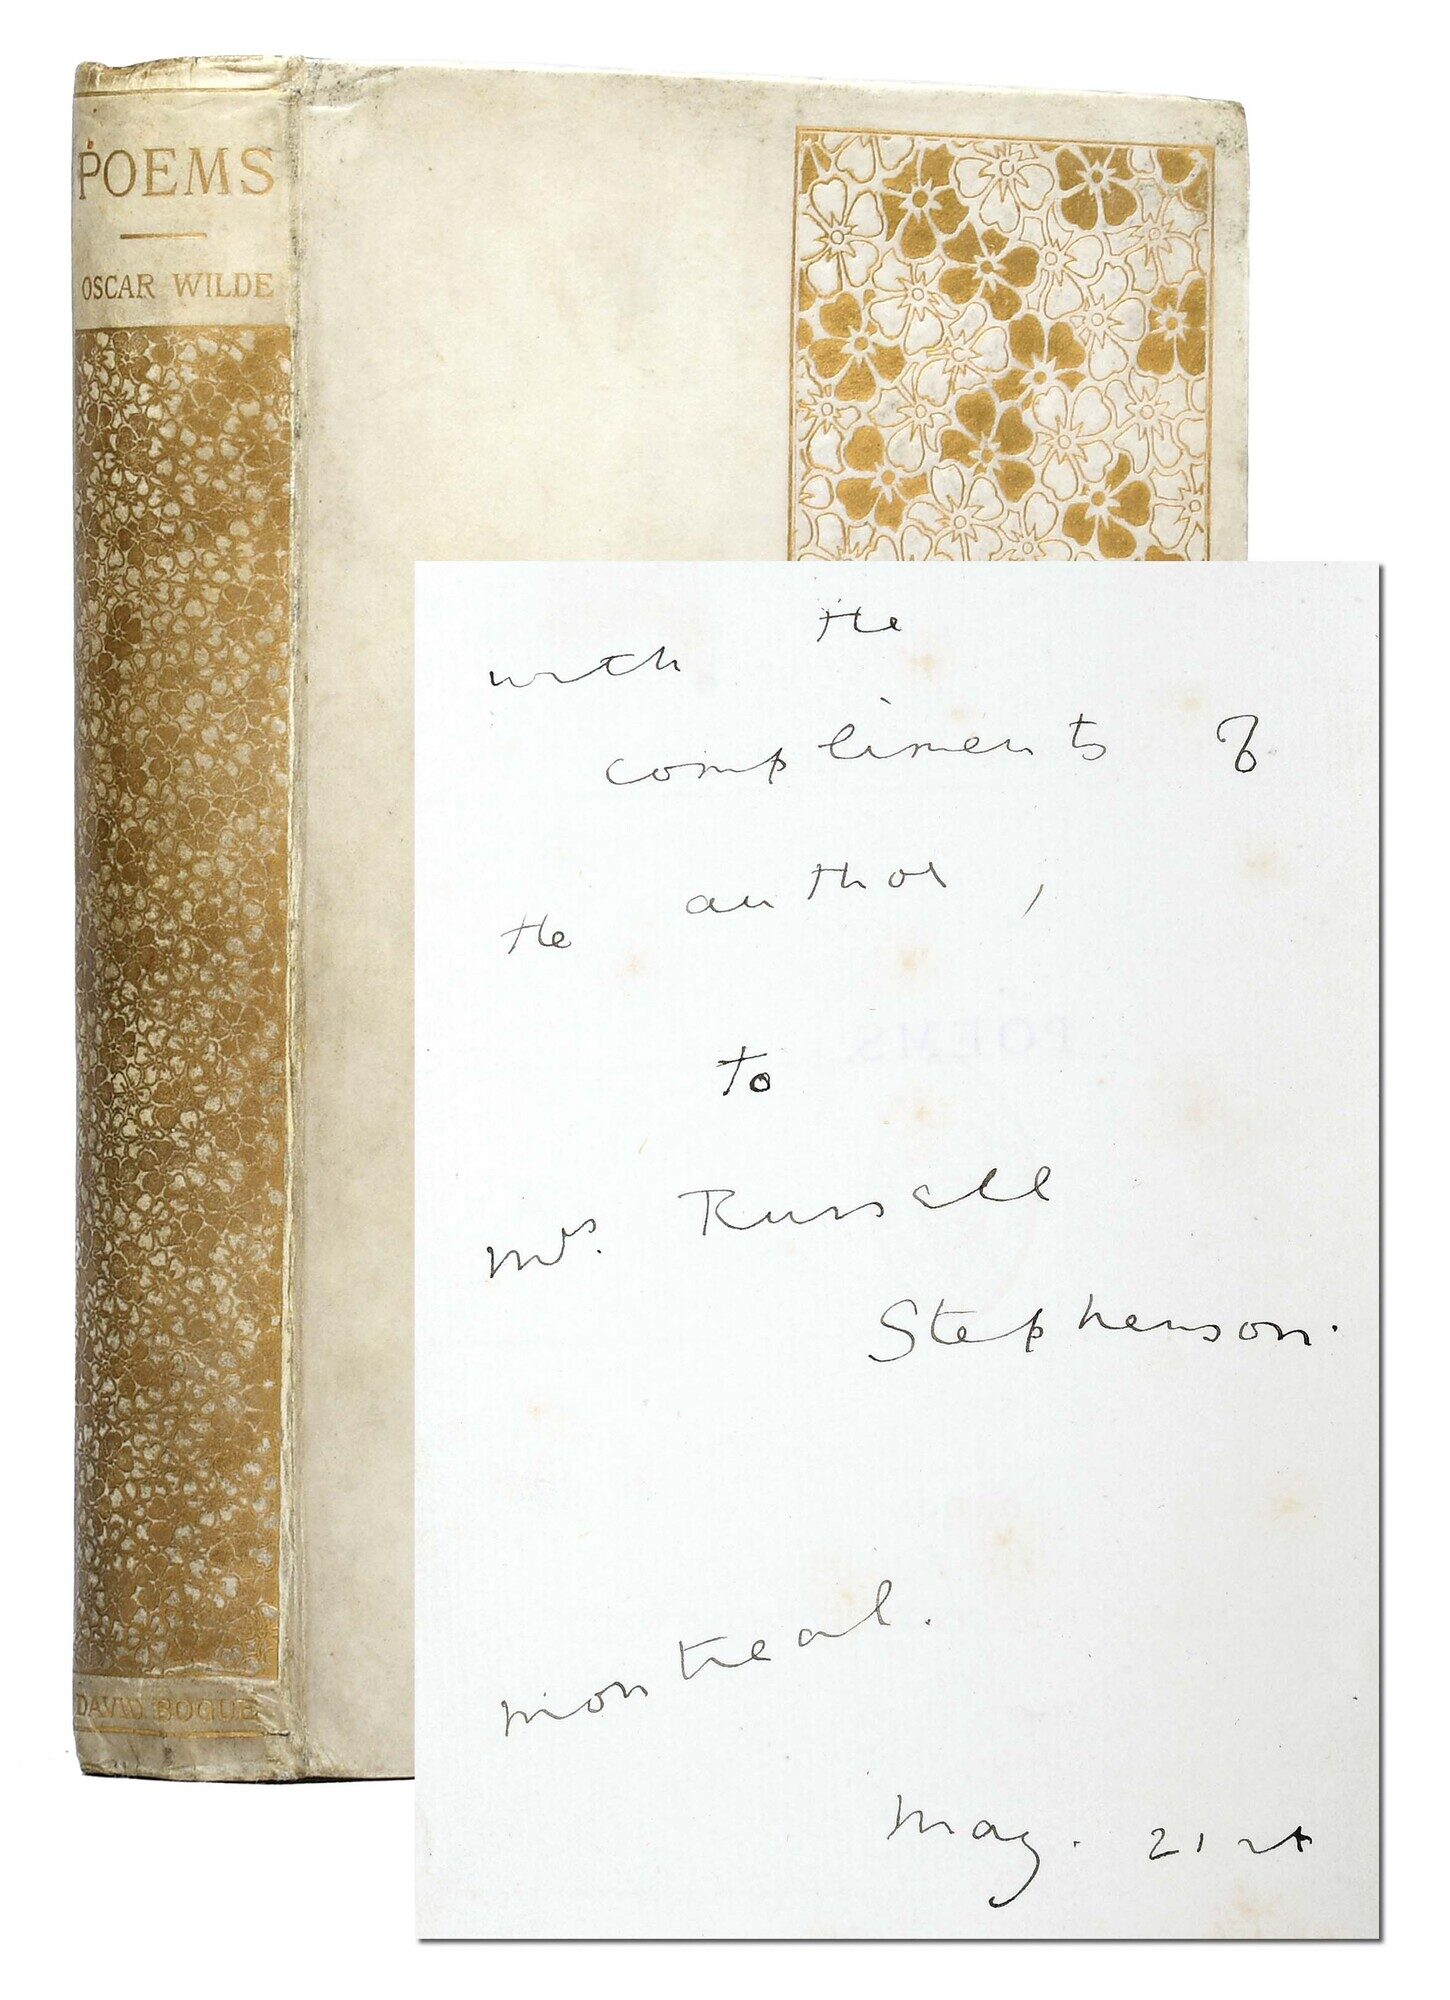 POEMS
OSCAR WILDE
DAVID BOGUE
with the
compliments of
the author,
to
Mrs. Russell
Stephenson.
Montreal.
May. 21st
POEMS